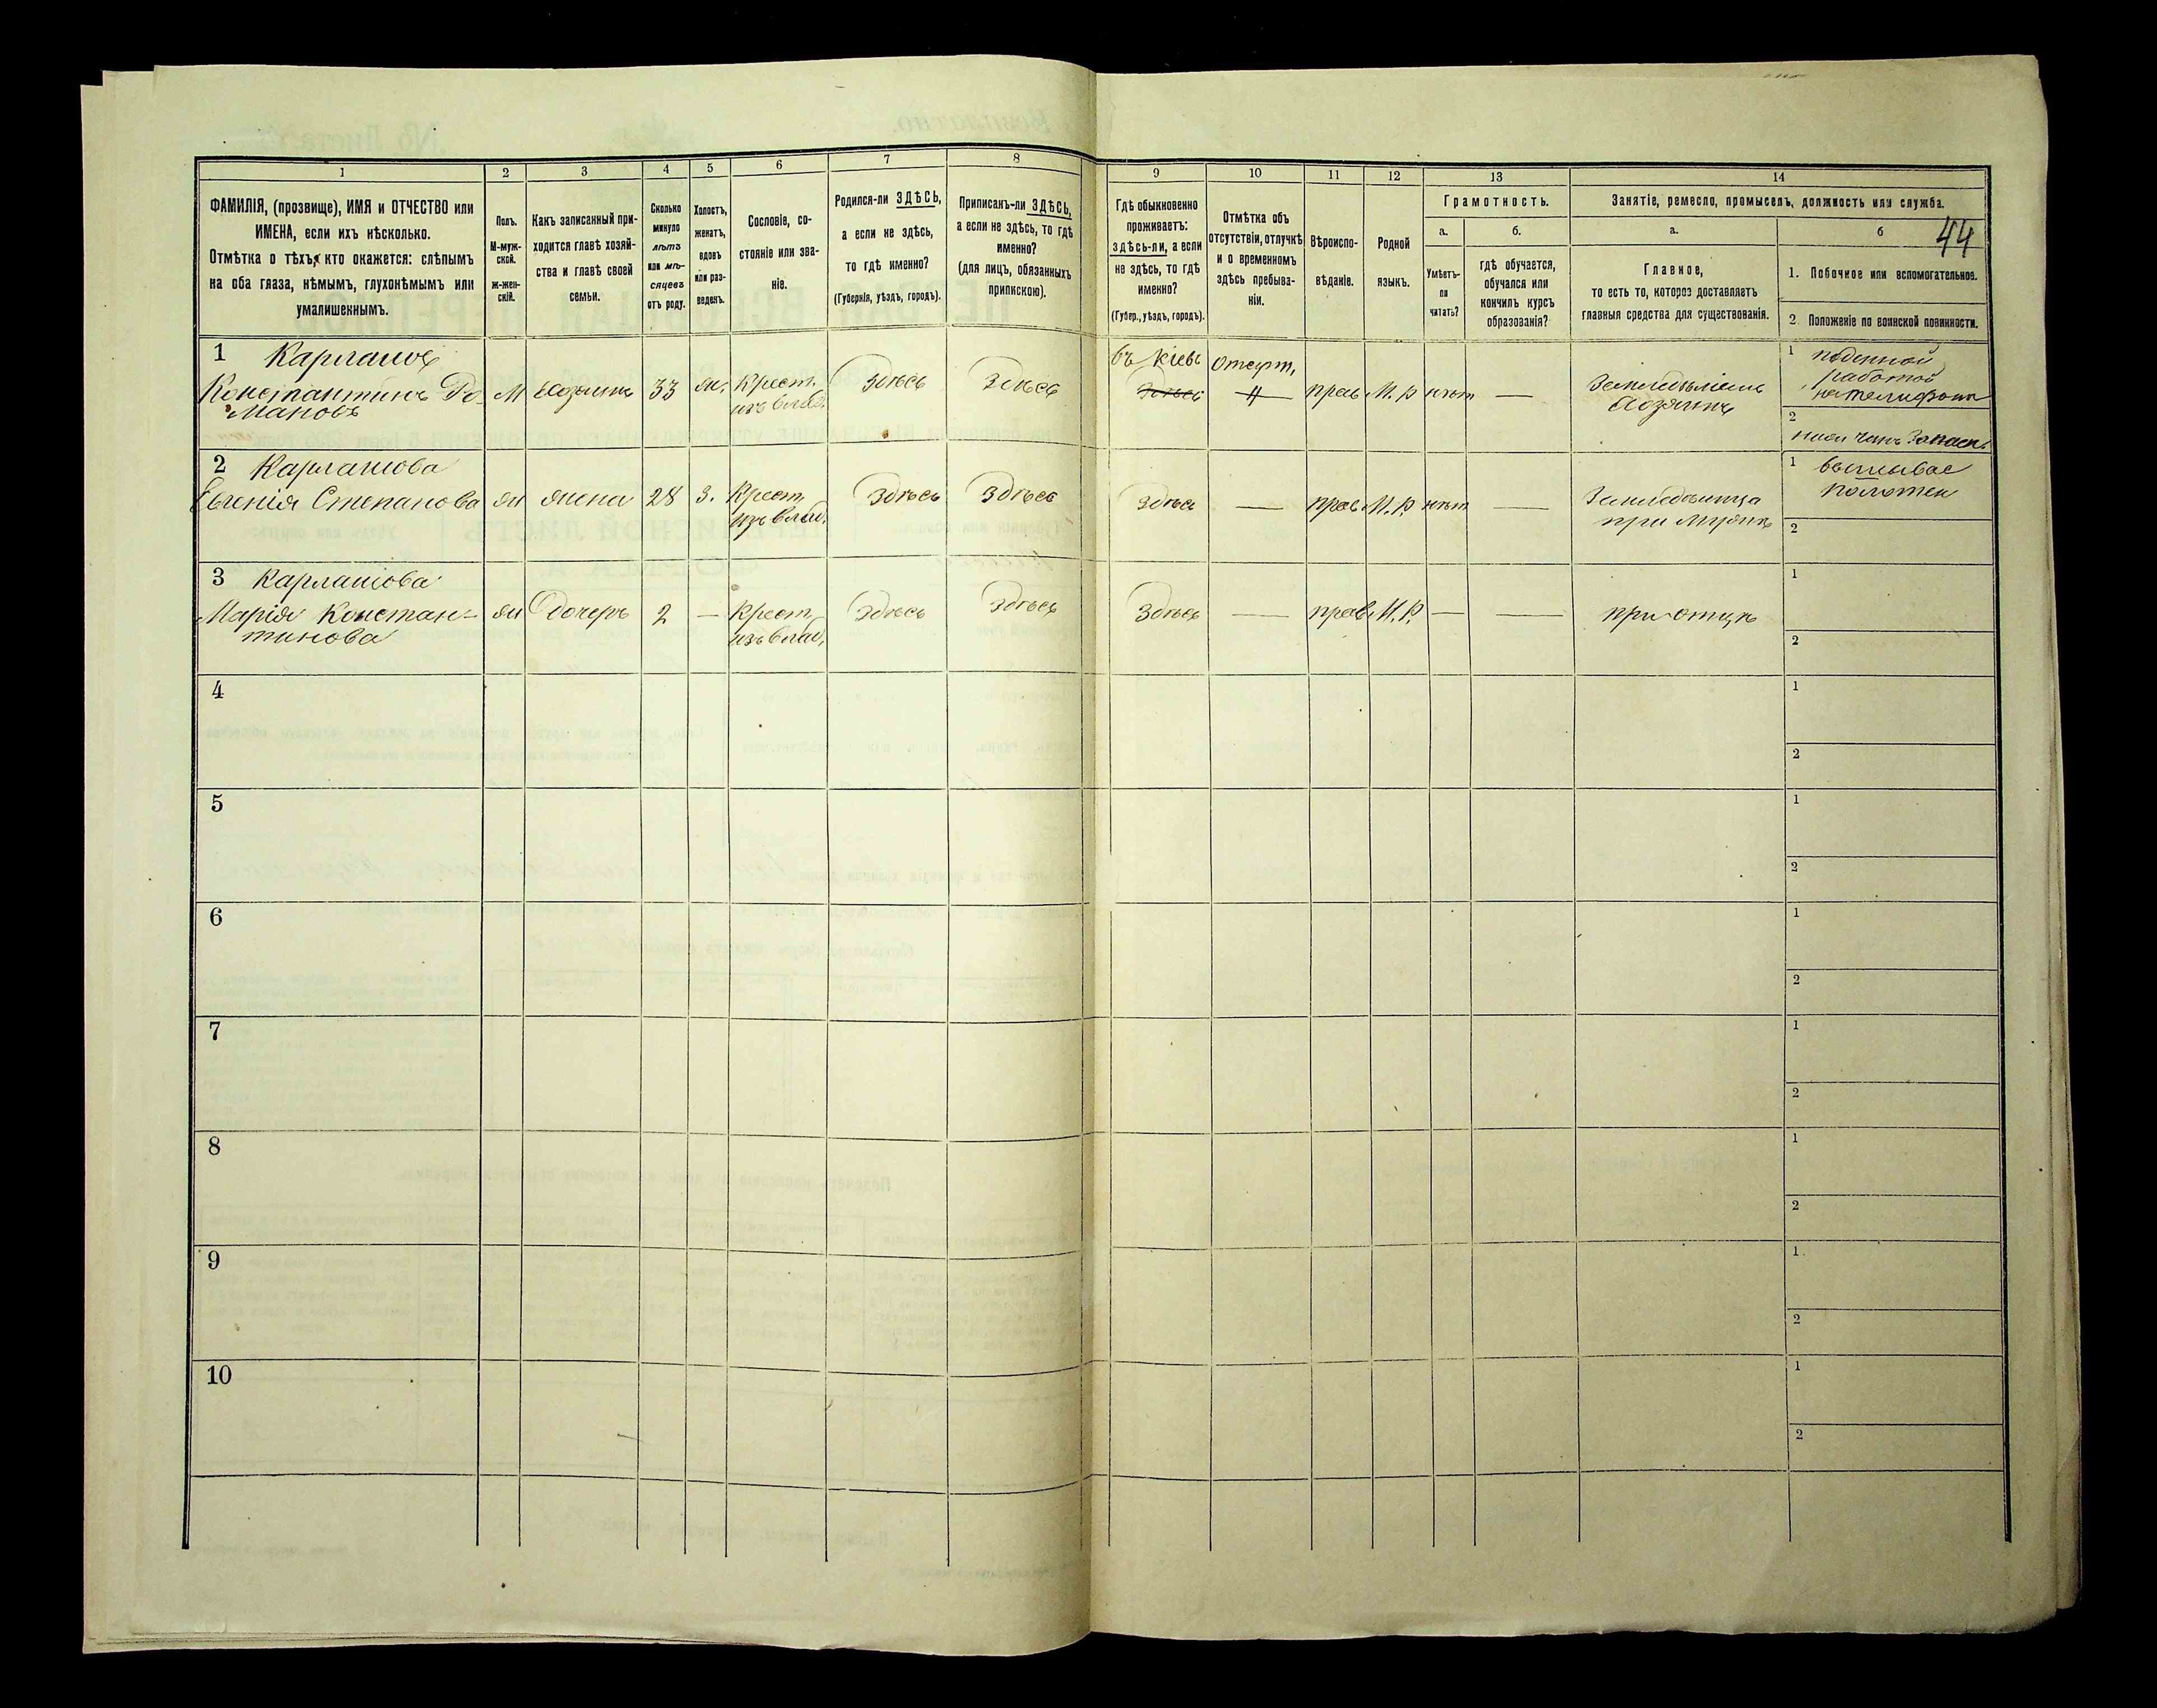 1
2
3
4
5
6
7
8
9
10
11
12
13
14
ФАМИЛІЯ, (прозвище), ИМЯ и ОТЧЕСТВО или
ИМЕНА, если ихъ нѣсколько.
Отмѣтка о тѣхъ, кто окажется: слѣпымъ
на оба глаза, нѣмымъ, глухонѣмымъ или
умалишеннымъ.
Полъ.
М-муж-
ской.
Ж-жен-
скій.
Какъ записанный при-
ходится главѣ хозяй-
ства и главѣ своей
семьи.
Сколько
минуло
лѣтъ
или мѣ-
сяцевъ
отъ роду.
Холостъ,
женатъ,
вдовъ
или раз-
веденъ.
Сословіе, со-
стояніе или зва-
ніе.
Родился-ли ЗДѢСЬ,
а если не здѣсь,
то гдѣ именно?
(Губернія, уѣздъ, городъ).
Приписанъ-ли ЗДѢСЬ,
а если не здѣсь, то гдѣ
именно?
(для лицъ, обязанныхъ
припискою).
Гдѣ обыкновенно
проживаетъ:
здѣсь-ли, а если
не здѣсь, то гдѣ
именно?
(Губер., уѣздъ, городъ).
Отмѣтка объ
отсутствіи, отлучкѣ
и о временномъ
здѣсь пребыва-
ніи.
Вѣроиспо-
вѣданіе.
Родной
языкъ.
Грамотность.
а.
Умѣетъ-
ли
читать?
б.
гдѣ обучается,
обучался или
кончилъ курсъ
образованія?
Занятіе, ремесло, промыселъ, должность или служба.
а.
Главное,
то есть то, которое доставляетъ
главныя средства для существованія.
б
44
1. Побочное или вспомогательное.
2. Положеніе по воинской повинности.
1 Карпашов
Константинъ Ро-
мановъ
М
Хозяинъ
33
ж.
Крест.
изъ влад.
Здѣсь
Здѣсь
Въ Кіевѣ
Здѣсь
прав
М. Р
нѣтъ
—
Земледѣліемъ
Хозяинъ
1 поденной
работой
2
2 Карпашова
Евгенія Степанова
ж
жена
28
З.
Крест.
изъ влад.
Здѣсь
Здѣсь
Здѣсь
—
прав
М. Р.
нѣтъ
—
при мужѣ
1
полотен
2
3 Карпашова
Марія Констан-
тинова
ж
Дочерь
2
—
Крест.
изъ влад.
Здѣсь
Здѣсь
Здѣсь
—
прав
М. Р.
—
—
при отцѣ
1
2
4
1
2
5
1
2
6
1
2
7
1
2
8
1
2
9
1
2
10
1
2